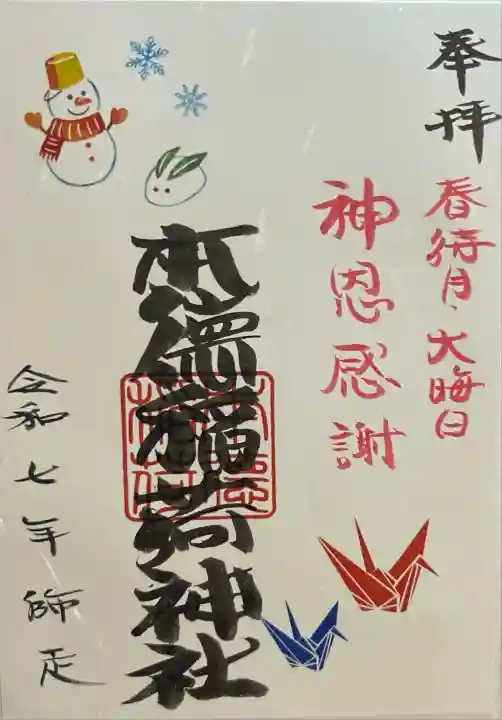 奉拝
春待月・大晦日
神恩感謝
本徳稲荷神社
令和七年師走